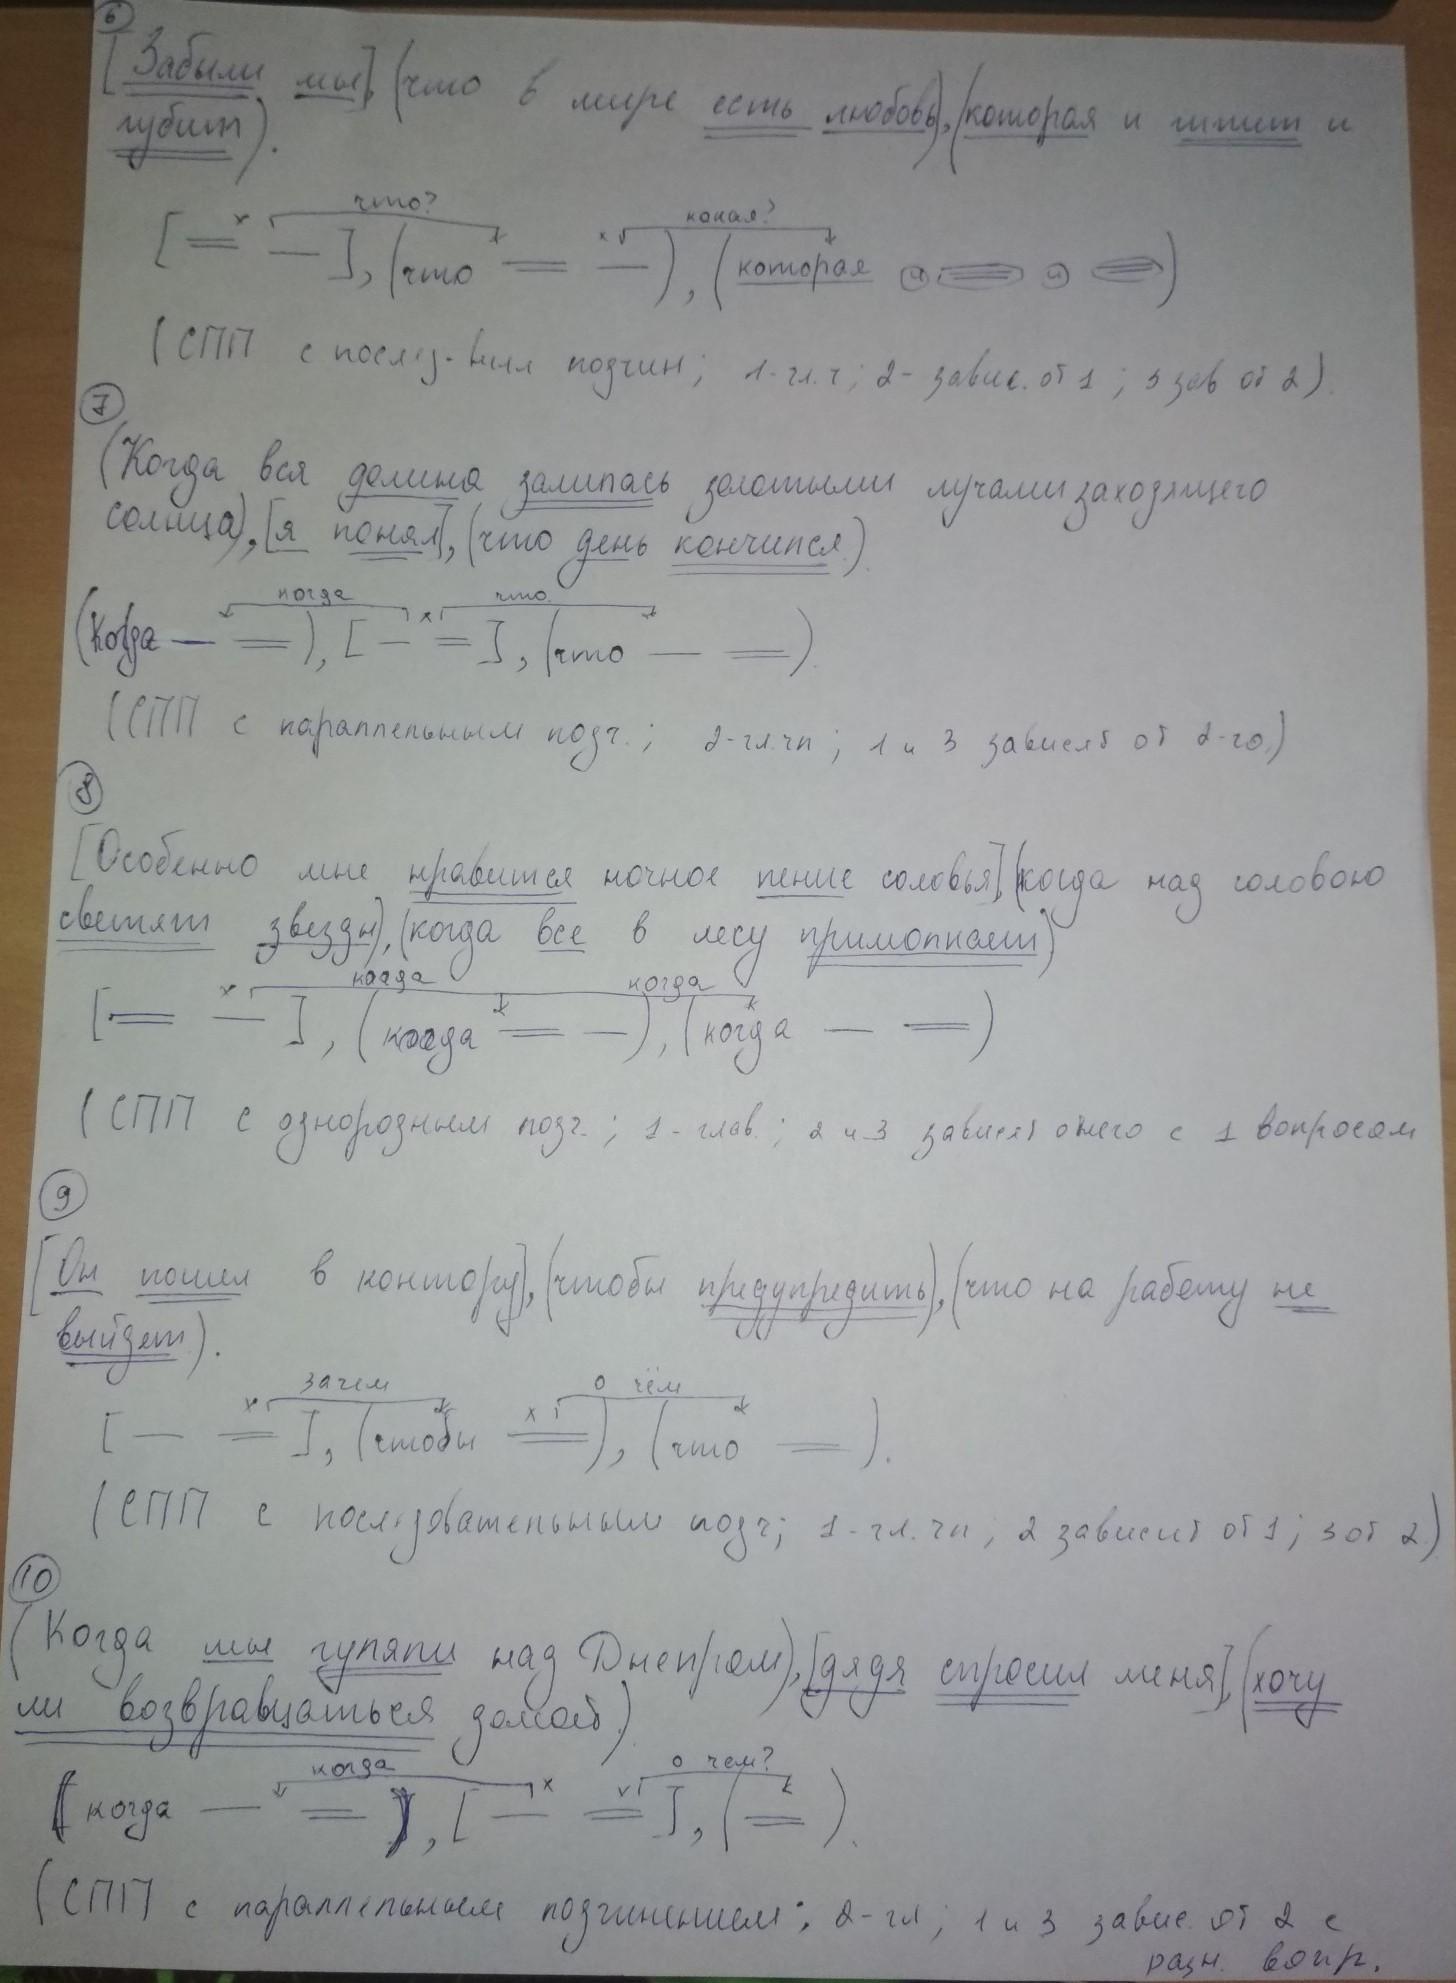 6
[Забыли мы], (что в мире есть любовь), (которая и
губит).
что? какая?
[ ], (что ), (которая и и )
(СПП с послед-ным подчин; 1-гл.ч; 2- завис. от 1; 3 зав от 2).
7
(Когда вся долина залилась золотыми лучами заходящего
солнца), [я понял], (что день кончился).
когда что
(Когда ), [ ], (что ).
(СПП с параллельным подч.; 2-гл.чп; 1 и 3 зависят от 2-го.)
8
[Особенно мне нравится ночное пение соловья], (когда над головою
светят звезды), (когда все в лесу примолкает)
когда когда
[ ], (когда ), (когда )
(СПП с однородным подч.; 1-глав.; 2 и 3 зависят отнего с 1 вопросом
9
[Он пошел в контору], (чтобы предупредить), (что на работу не
выйдет).
зачем о чём
[ ], (чтобы ), (что ).
(СПП с последовательным подч; 1-гл.чп; 2 зависит от 1; 3 от 2)
10
(Когда мы гуляли над Днепром), [дядя спросил меня], (хочу
ли возвращаться домой.)
когда о чем?
(когда ), [ ], ( ).
(СПП с параллельным подчинением; 2-гл; 1 и 3 завис. от 2 с
разн. вопр.